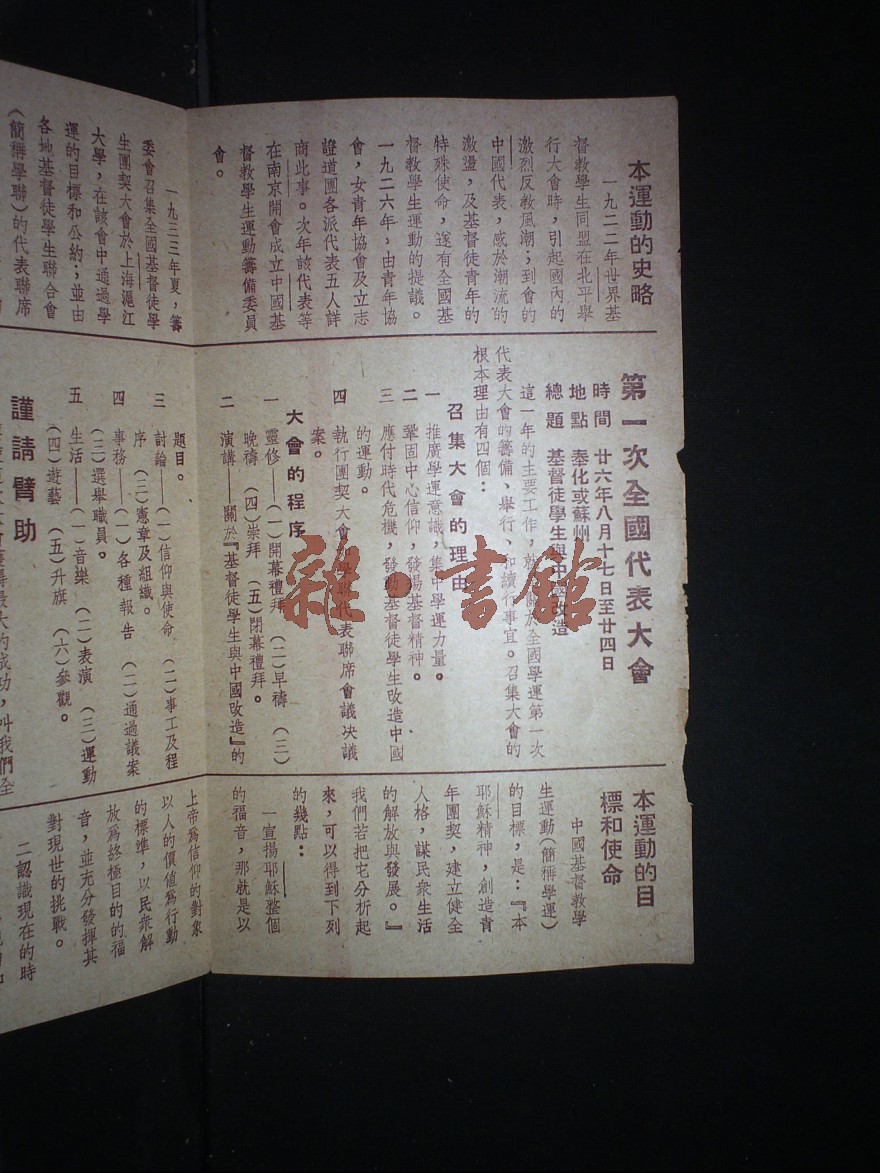 本運動的史略
一九二二年世界基
督教學生同盟在北平舉
行大會時，引起國內的
激烈反教風潮；到會的
中國代表，感於潮流的
激盪，及基督徒青年的
特殊使命，遂有全國基
督教學生運動的提議。
一九二六年，由青年協
會，女青年協會及立志
證道團各派代表五人詳
商此事。次年該代表等
在南京開會成立中國基
督教學生運動籌備委員
會。
一九三三年夏，籌
委會召集全國基督徒學
生團契大會於上海滬江
大學，在該會中通過學
運的目標和公約；並由
各地基督徒學生聯合會
（簡稱學聯）的代表聯席
第一次全國代表大會
時間 廿六年八月十七日至廿四日
地點 奉化或蘇州
總題 基督徒學生與中國改造
這一年的主要工作，就是關於全國學運第一次
代表大會的籌備、舉行、和續行事宜。召集大會的
根本理由有四個：
召集大會的理由
一 推廣學運意識，集中學運力量。
二 鞏固中心信仰，發揚基督精神。
三 應付時代危機，發動基督徒學生改造中國
的運動。
四 執行團契大會及學聯代表聯席會議決議
案。
大會的程序
一 靈修——（一）開幕禮拜 （二）早禱 （三）
晚禱 （四）崇拜 （五）閉幕禮拜。
二 演講——關於『基督徒學生與中國改造』的
題目。
三 討論——（一）信仰與使命 （二）事工及程
序 （三）憲章及組織。
四 事務——（一）各種報告 （二）通過議案
（三）選舉職員。
五 生活——（一）音樂 （二）表演 （三）運動
（四）遊藝 （五）升旗 （六）參觀。
謹請臂助
最大的成功，叫我們全
本運動的目
標和使命
中國基督教學
生運動（簡稱學運）
的目標，是：『本
耶穌精神，創造青
年團契，建立健全
人格，謀民衆生活
的解放與發展。』
我們若把它分析起
來，可以得到下列
的幾點：
一宣揚耶穌整個
的福音，那就是以
上帝爲信仰的對象
以人的價值爲行動
的標準，以民衆解
放爲終極目的的福
音，並充分發揮其
對現世的挑戰。
二認識現在的時
雜·書館